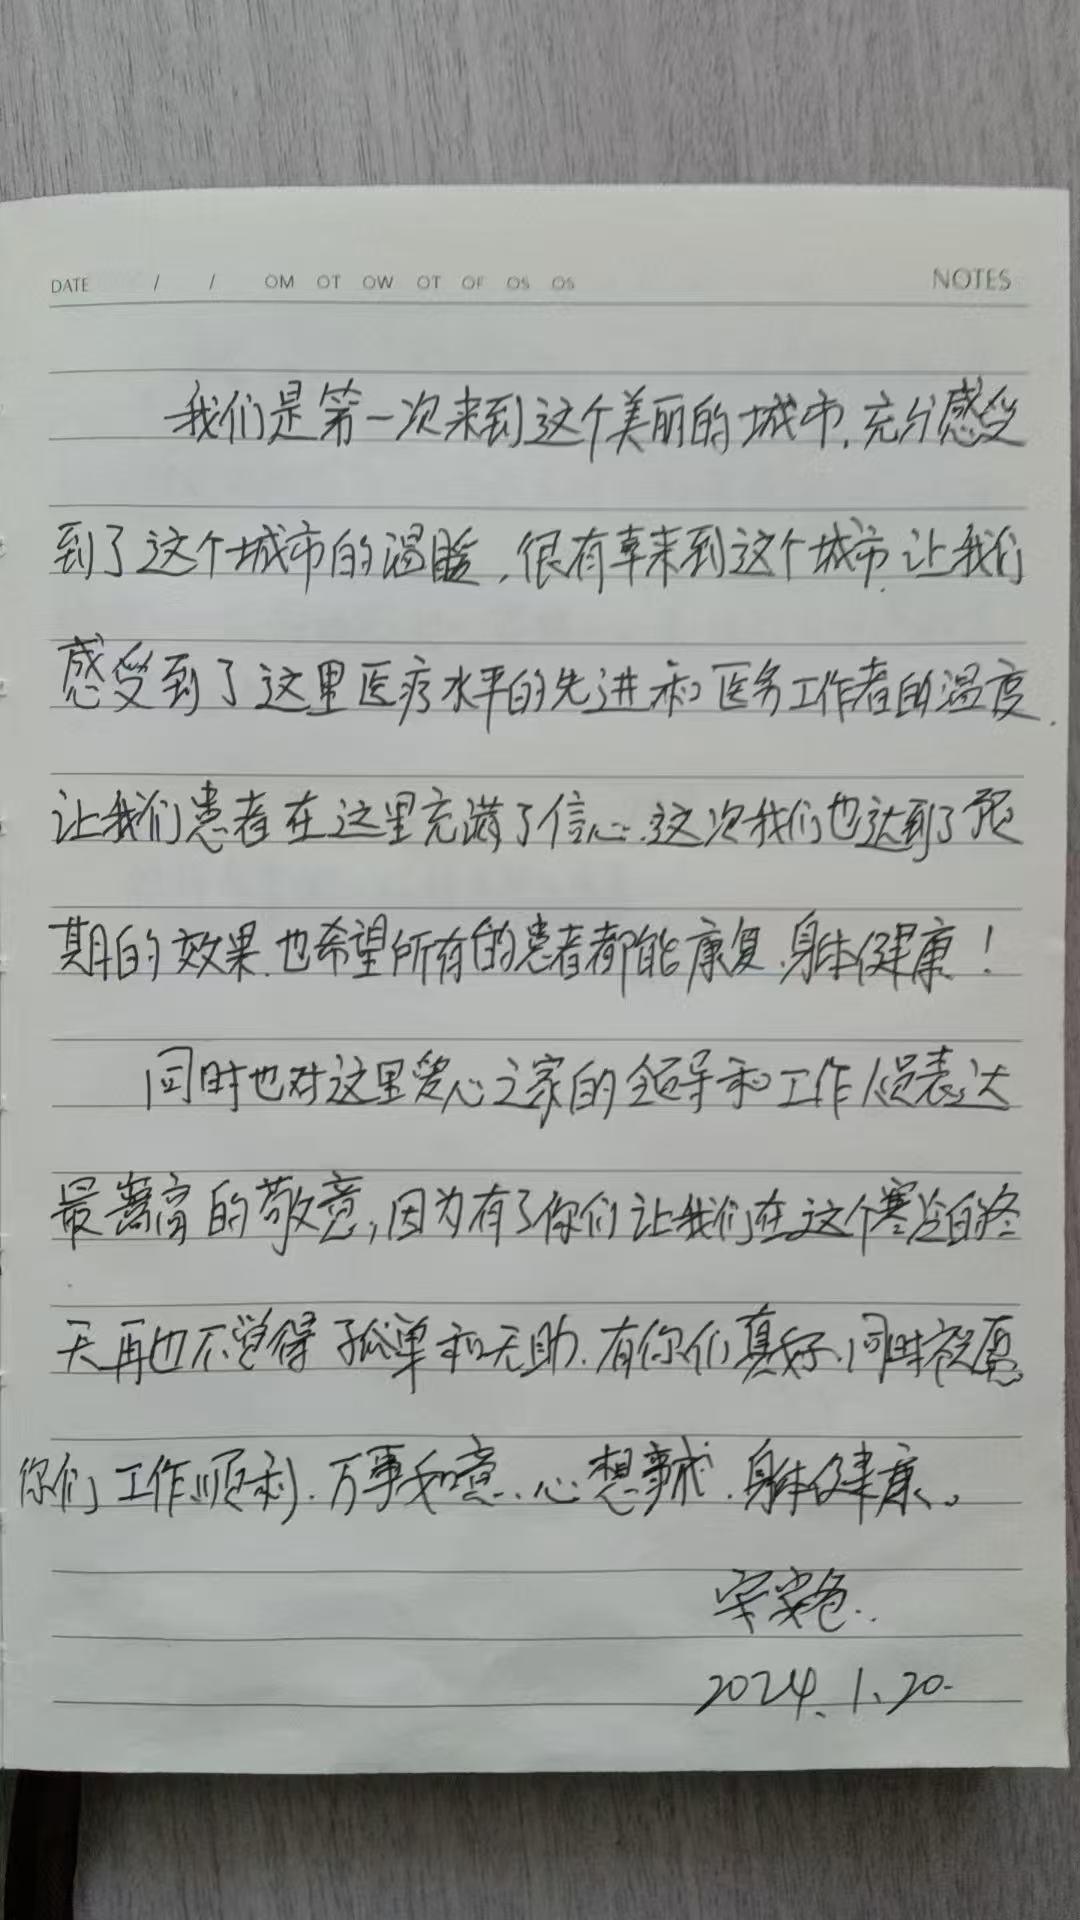 DATE / / OM OT OW OT OF OS OS NOTES
我们是第一次来到这个美丽的城市,充分感受
到了这个城市的温暖,很有幸来到这个城市,让我们
感受到了这里医疗水平的先进和医务工作者的温度.
让我们患者在这里充满了信心.这次我们也达到了预
期的效果.也希望所有的患者都能康复.身体健康!
同时也对这里爱心之家的领导和工作人员表达
最崇高的敬意,因为有了你们让我们在这个寒冷的冬
天再也不觉得孤单和无助.有你们真好.同时祝愿
你们工作顺利.万事如意.心想事成.身体健康。
2024.1.20.